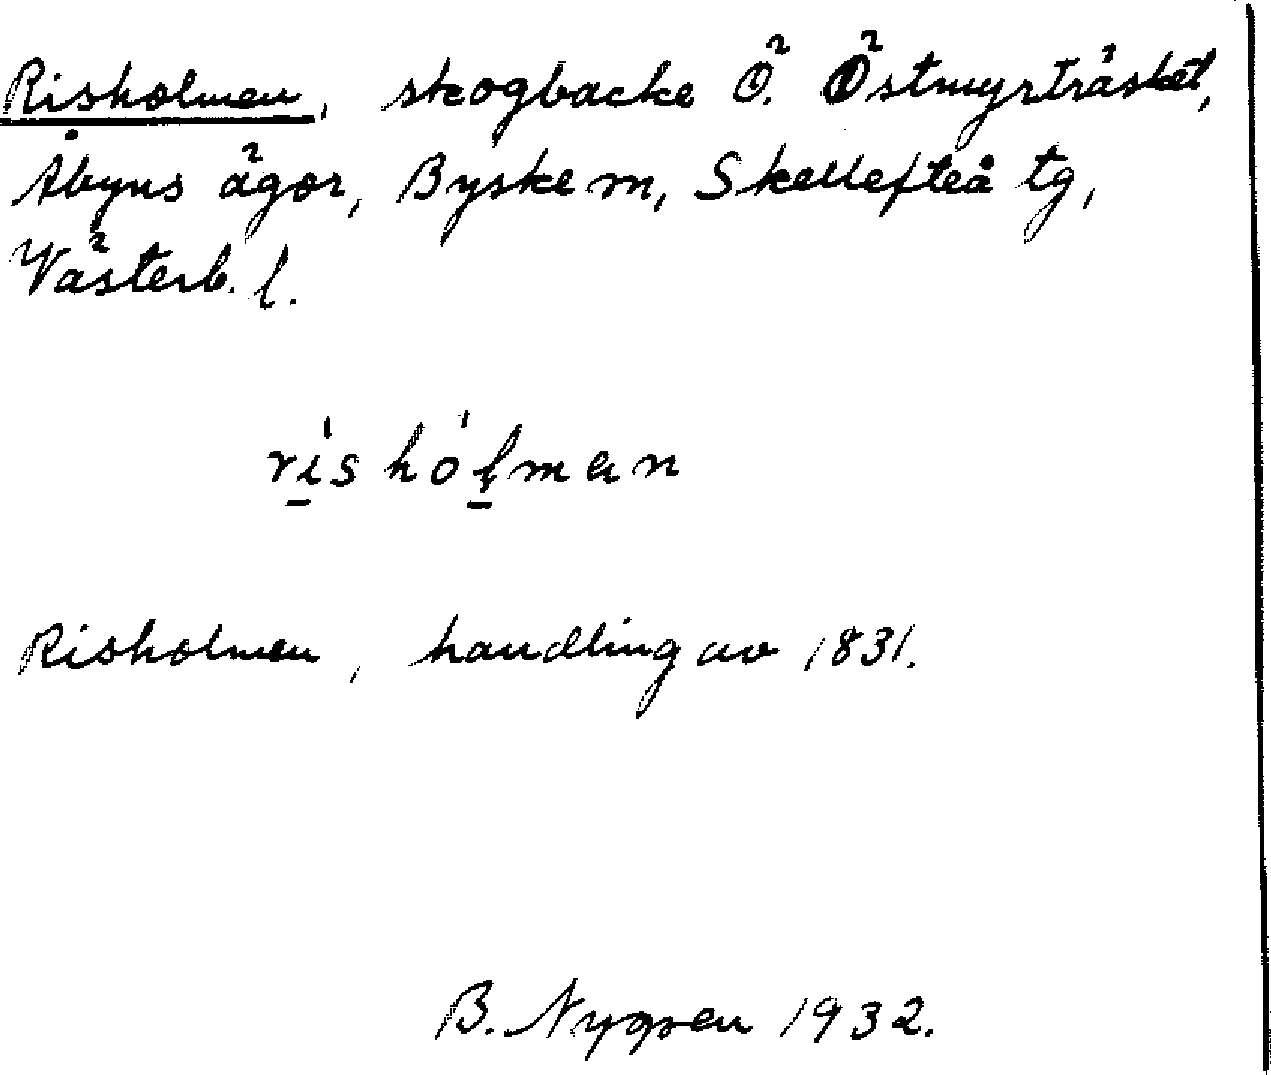 Risholmen, skogbacke Ö. Östmyrträsket,
Åbyns ägor, Byske m, Skellefteå tg,
Västerb. l.
ri̲s hó l̲man
Risholmen, handling av 1831.
B. Nygren 1932.